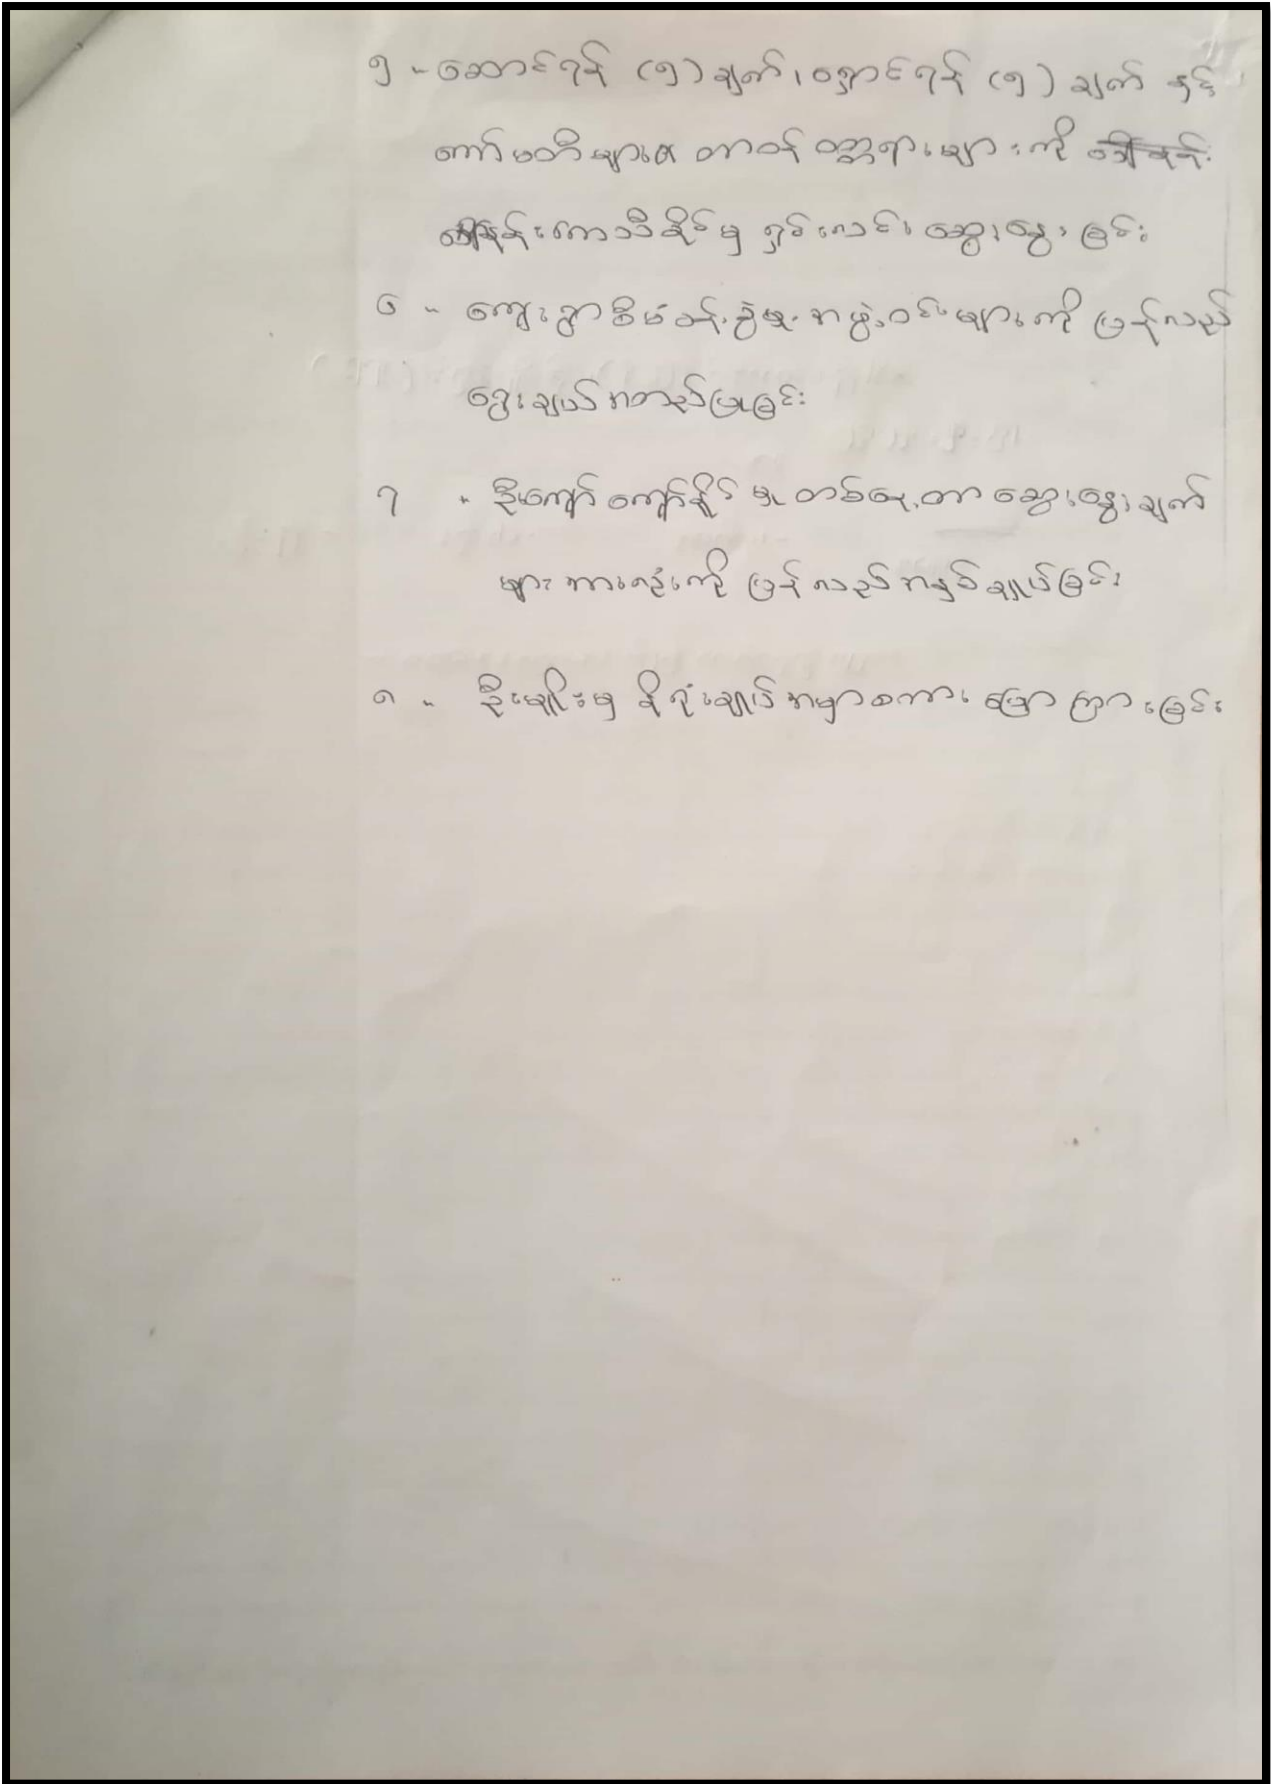 ၅ - ဆောင်ရန် (၅) ချက်၊ ရှောင်ရန် (၅) ချက် နှင့်
ကော်မတီများ၏ တာဝန် ဝတ္တရားများကို
ဒေါ်နန်းကေသီခိုင်မှ ရှင်းလင်း ဆွေးနွေးခြင်း
၆ - ကျေးရွာစီမံခန့်ခွဲမှု အဖွဲ့ဝင်များကို ပြန်လည်
ရွေးချယ်အတည်ပြုခြင်း
၇ - ဦးကျော်ကျော်နိုင် မှ တစ်နေ့တာ ဆွေးနွေးချက်
များ အားလုံးကို ပြန်လည်အနှစ်ချုပ်ခြင်း
၈ - ဦးမျိုးမှ နိဂုံးချုပ်အမှာစကား ပြောကြားခြင်း